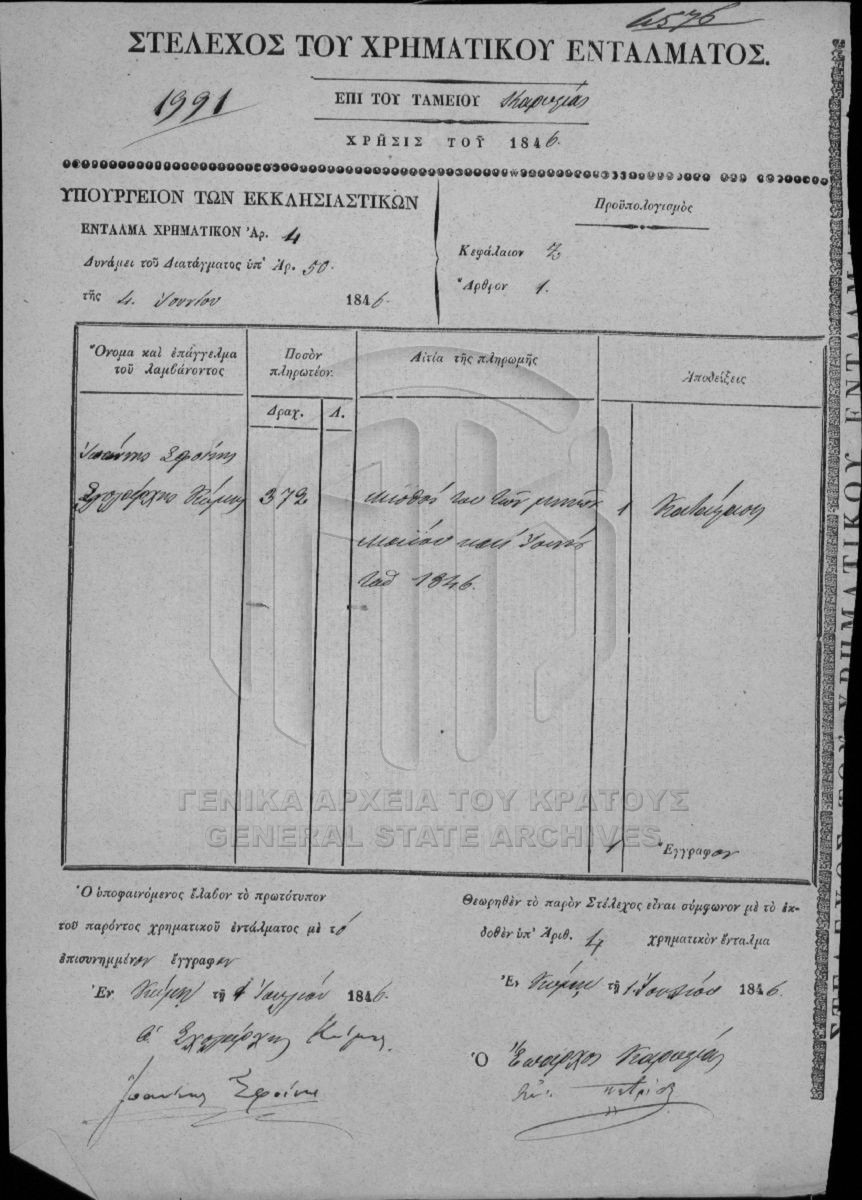 6576
ΣΤΕΛΕΧΟΣ ΤΟΥ ΧΡΗΜΑΤΙΚΟΥ ΕΝΤΑΛΜΑΤΟΣ.
1991
ΕΠΙ ΤΟΥ ΤΑΜΕΙΟΥ Καρυστίας
ΧΡΗΣΙΣ ΤΟΥ 1846.
ΥΠΟΥΡΓΕΙΟΝ ΤΩΝ ΕΚΚΛΗΣΙΑΣΤΙΚΩΝ
ΕΝΤΑΛΜΑ ΧΡΗΜΑΤΙΚΟΝ Ἀρ. 4
Δυνάμει τοῦ Διατάγματος ὑπ' Ἀρ. 50.
τῆς 4 Ἰουνίου 1846.
Προϋπολογισμὸς
Κεφάλαιον Ζ
Ἄρθρον 1.
Ὄνομα καὶ ἐπάγγελμα
τοῦ λαμβάνοντος
Ποσὸν
πληρωτέον.
Δραχ. Λ.
Αἰτία τῆς πληρωμῆς
Ἀποδείξεις
Ἰωάννης
Σχολάρχης Κύμης 372 μισθός του τῶν μηνῶν 1 Κατάστασις
Μαΐου καὶ
τοῦ 1846.
ΓΕΝΙΚΑ ΑΡΧΕΙΑ ΤΟΥ ΚΡΑΤΟΥΣ
GENERAL STATE ARCHIVES
1 Ἔγγραφον
Ὁ ὑποφαινόμενος ἔλαβον τὸ πρωτότυπον
τοῦ παρόντος χρηματικοῦ ἐντάλματος μὲ τὸ
ἐπισυνημμένον ἔγγραφον
Ἐν Κύμῃ τῇ 1 Ἰουλίου 1846.
Ὁ Σχολάρχης Κύμης
Ἰωάννης
Θεωρηθὲν τὸ παρὸν Στέλεχος εἶναι σύμφωνον μὲ τὸ ἐκ-
δοθὲν ὑπ' Ἀριθ. 4 χρηματικὸν ἔνταλμα
Ἐν Κύμῃ τῇ 1 Ἰουλίου 1846.
Ὁ Ἔπαρχος Καρυστίας
ΣΤΕΛΕΧΟΣ ΤΟΥ ΧΡΗΜΑΤΙΚΟΥ ΕΝΤΑΛΜΑ